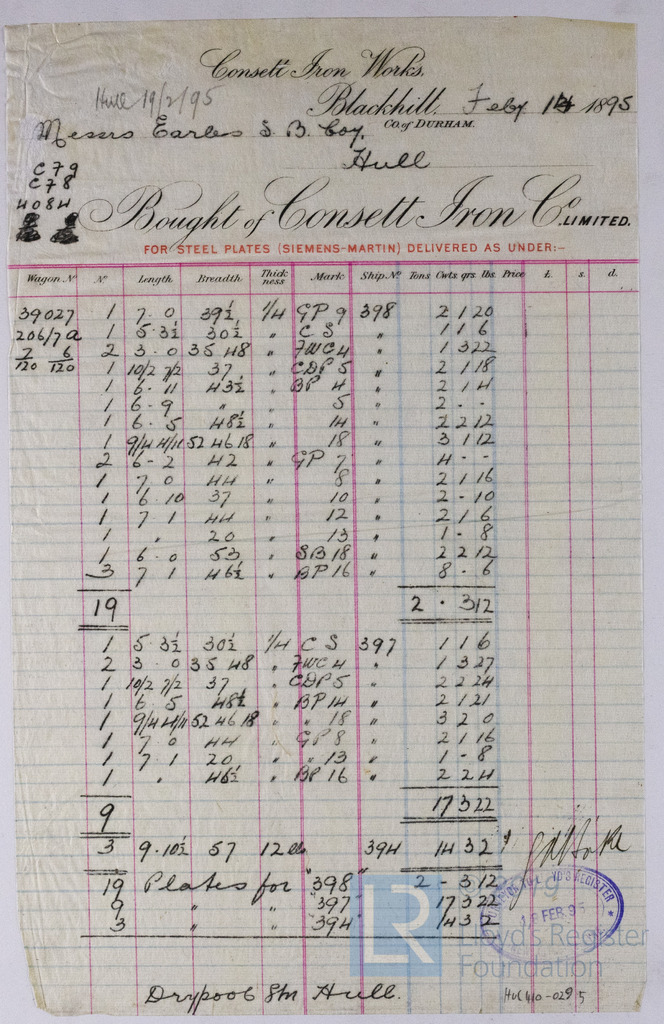 Consett Iron Works,
Hull 19/2/95
Blackhill, Feby 14 1895
Co. of DURHAM.
Messrs Earles S. B. Coy.
Hull
C79
C78
4084
Bought of Consett Iron Co. LIMITED.
FOR STEEL PLATES (SIEMENS-MARTIN) DELIVERED AS UNDER:-
Wagon No No Length Breadth Thickness Mark Ship No. Tons Cwts. qrs. lbs. Price £. s. d.
39027 1 7.0 39½ ¼ GP 9 398 2 1 20
206/7a 1 5.3½ 30½ " C S " 1 1 6
7/120 6/120 2 3.0 35 48 " FWC 4 " 1 3 22
1 10/2 7/2 37 " CDP 5 " 2 1 18
1 6.11 43½ " BP 4 " 2 1 4
1 6-9 " " 5 " 2 - -
1 6.5 48½ " 14 " 2 2 12
1 9/4 4/11 52 46 18 " 18 " 3 1 12
2 6-2 42 " GP 7 " 4 - -
1 7 0 44 " 8 " 2 1 16
1 6 10 37 " 10 " 2 - 10
1 7 1 44 " 12 " 2 1 6
1 " 20 " 13 " 1 - 8
1 6.0 53 " SB 18 " 2 2 12
3 7 1 46½ " BP 16 " 8 - 6
19 2 . 3 12
1 5 3½ 30½ ¼ C S 397 1 1 6
2 3.0 35 48 " FWC 4 " 1 3 27
1 10/2 7/2 37 " CDP 5 " 2 2 24
1 6 5 48½ " BP 14 " 2 1 21
1 9/4 4/11 52 46 18 " " 18 " 3 2 0
1 7 0 44 " GP 8 " 2 1 16
1 7 1 20 " " 13 " 1 - 8
1 " 46½ " BP 16 " 2 2 4
9 17 3 22
3 9.10½ 57 12 lb 394 14 3 2
19 Plates for "398 2 - 3 12
9 " " "397 17 3 22
3 " " "394 14 3 2
LLOYD'S REGISTER
FEB 95
LR
Lloyd's Register
Foundation
Drypool Stn Hull.
HUL410-0295